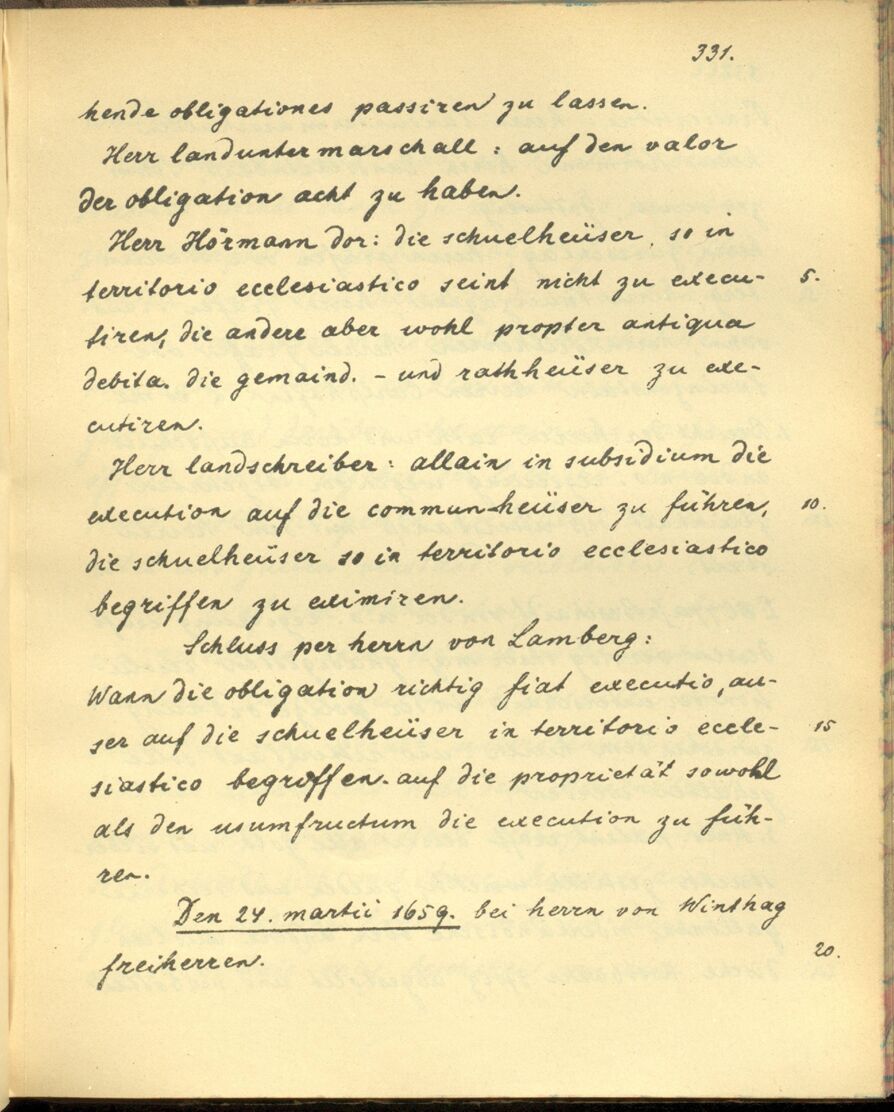 331.
hende obligationes passiren zu lassen.
Herr landuntermarschall: auf den valor
der obligation acht zu haben.
Herr Hörmann dor: die schuelheüser, so in
territorio ecclesiastico seint nicht zu execu- 5.
tiren, die andere aber wohl propter antiqua
debita. die gemaind. - und rathheüser zu exe-
cutiren.
Herr landschreiber: allain in subsidium die
execution auf die commun-heüser zu führen, 10.
die schuelheüser so in territorio ecclesiastico
begriffen zu eximiren.
Schluss per herrn von Lamberg:
Wann die obligation richtig fiat executio, au-
ser auf die schuelheüser in territorio eccle- 15
siastico begriffen. auf die proprietät sowohl
als den usumfructum die execution zu füh-
ren.
Den 24. martii 1659. bei herrn von Winthag
freiherren. 20.